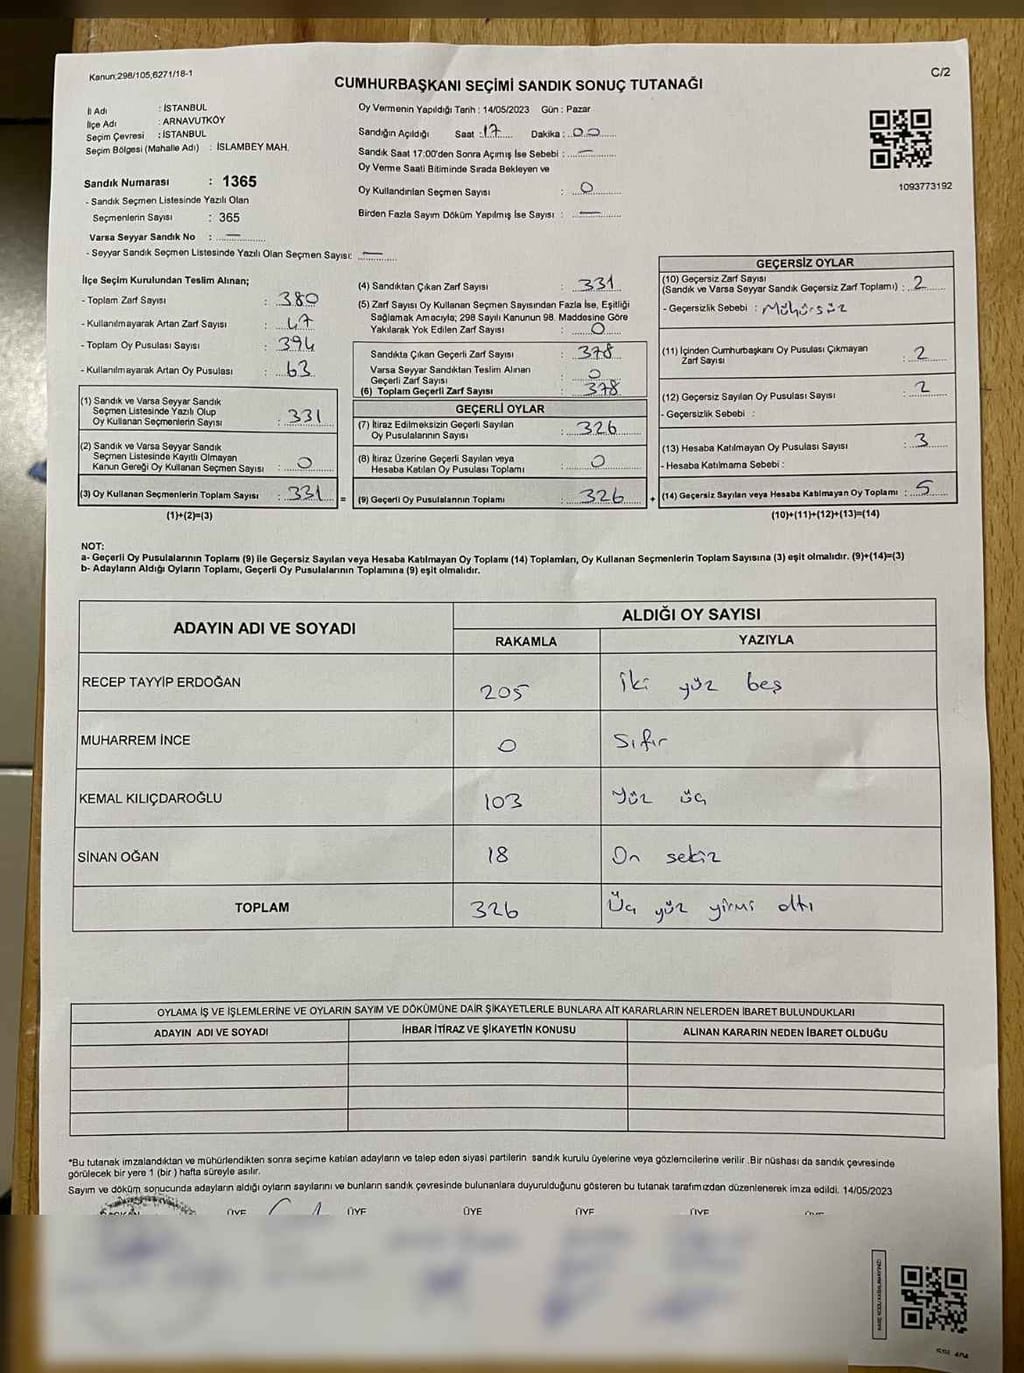 Kanun;298/105,6271/18-1
C/2
CUMHURBAŞKANI SEÇİMİ SANDIK SONUÇ TUTANAĞI
İl Adı : İSTANBUL
İlçe Adı : ARNAVUTKÖY
Seçim Çevresi : İSTANBUL
Seçim Bölgesi (Mahalle Adı) : İSLAMBEY MAH.
Sandık Numarası : 1365
- Sandık Seçmen Listesinde Yazılı Olan
Seçmenlerin Sayısı : 365
Varsa Seyyar Sandık No : —
- Seyyar Sandık Seçmen Listesinde Yazılı Olan Seçmen Sayısı: —
Oy Vermenin Yapıldığı Tarih : 14/05/2023 Gün : Pazar
Sandığın Açıldığı Saat : 17 Dakika : 00
Sandık Saat 17:00'den Sonra Açımış İse Sebebi : —
Oy Verme Saati Bitiminde Sırada Bekleyen ve
Oy Kullandırılan Seçmen Sayısı : 0
Birden Fazla Sayım Döküm Yapılmış İse Sayısı : —
1093773192
İlçe Seçim Kurulundan Teslim Alınan;
- Toplam Zarf Sayısı : 380
- Kullanılmayarak Artan Zarf Sayısı : 47
- Toplam Oy Pusulası Sayısı : 394
- Kullanılmayarak Artan Oy Pusulası : 63
(1) Sandık ve Varsa Seyyar Sandık
Seçmen Listesinde Yazılı Olup
Oy Kullanan Seçmenlerin Sayısı : 331
(2) Sandık ve Varsa Seyyar Sandık
Seçmen Listesinde Kayıtlı Olmayan
Kanun Gereği Oy Kullanan Seçmen Sayısı : 0
(3) Oy Kullanan Seçmenlerin Toplam Sayısı : 331 =
(1)+(2)=(3)
(4) Sandıktan Çıkan Zarf Sayısı : 331
(5) Zarf Sayısı Oy Kullanan Seçmen Sayısından Fazla İse, Eşitliği
Sağlamak Amacıyla; 298 Sayılı Kanunun 98. Maddesine Göre
Yakılarak Yok Edilen Zarf Sayısı : 0
Sandıkta Çıkan Geçerli Zarf Sayısı : 378
Varsa Seyyar Sandıktan Teslim Alınan
Geçerli Zarf Sayısı : 0
(6) Toplam Geçerli Zarf Sayısı : 378
GEÇERLİ OYLAR
(7) İtiraz Edilmeksizin Geçerli Sayılan
Oy Pusulalarının Sayısı : 326
(8) İtiraz Üzerine Geçerli Sayılan veya
Hesaba Katılan Oy Pusulası Toplamı : 0
(9) Geçerli Oy Pusulalarının Toplamı : 326 +
GEÇERSİZ OYLAR
(10) Geçersiz Zarf Sayısı
(Sandık ve Varsa Seyyar Sandık Geçersiz Zarf Toplamı) : 2
- Geçersizlik Sebebi : Mühürsüz
(11) İçinden Cumhurbaşkanı Oy Pusulası Çıkmayan
Zarf Sayısı : 2
(12) Geçersiz Sayılan Oy Pusulası Sayısı : 2
- Geçersizlik Sebebi :
(13) Hesaba Katılmayan Oy Pusulası Sayısı : 3
- Hesaba Katılmama Sebebi :
(14) Geçersiz Sayılan veya Hesaba Katılmayan Oy Toplamı : 5
(10)+(11)+(12)+(13)=(14)
NOT:
a- Geçerli Oy Pusulalarının Toplamı (9) ile Geçersiz Sayılan veya Hesaba Katılmayan Oy Toplamı (14) Toplamları, Oy Kullanan Seçmenlerin Toplam Sayısına (3) eşit olmalıdır. (9)+(14)=(3)
b- Adayların Aldığı Oyların Toplamı, Geçerli Oy Pusulalarının Toplamına (9) eşit olmalıdır.
ADAYIN ADI VE SOYADI ALDIĞI OY SAYISI
RAKAMLA YAZIYLA
RECEP TAYYİP ERDOĞAN 205 iki yüz beş
MUHARREM İNCE 0 Sıfır
KEMAL KILIÇDAROĞLU 103 Yüz üç
SİNAN OĞAN 18 On sekiz
TOPLAM 326 Üç yüz yirmi altı
OYLAMA İŞ VE İŞLEMLERİNE VE OYLARIN SAYIM VE DÖKÜMÜNE DAİR ŞİKAYETLERLE BUNLARA AİT KARARLARIN NELERDEN İBARET BULUNDUKLARI
ADAYIN ADI VE SOYADI İHBAR İTİRAZ VE ŞİKAYETİN KONUSU ALINAN KARARIN NEDEN İBARET OLDUĞU
*Bu tutanak imzalandıktan ve mühürlendikten sonra seçime katılan adayların ve talep eden siyasi partilerin sandık kurulu üyelerine veya gözlemcilerine verilir .Bir nüshası da sandık çevresinde
görülecek bir yere 1 (bir ) hafta süreyle asılır.
Sayım ve döküm sonucunda adayların aldığı oyların sayılarını ve bunların sandık çevresinde bulunanlara duyurulduğunu gösteren bu tutanak tarafımızdan düzenlenerek imza edildi. 14/05/2023
ÜYE ÜYE ÜYE ÜYE ÜYE